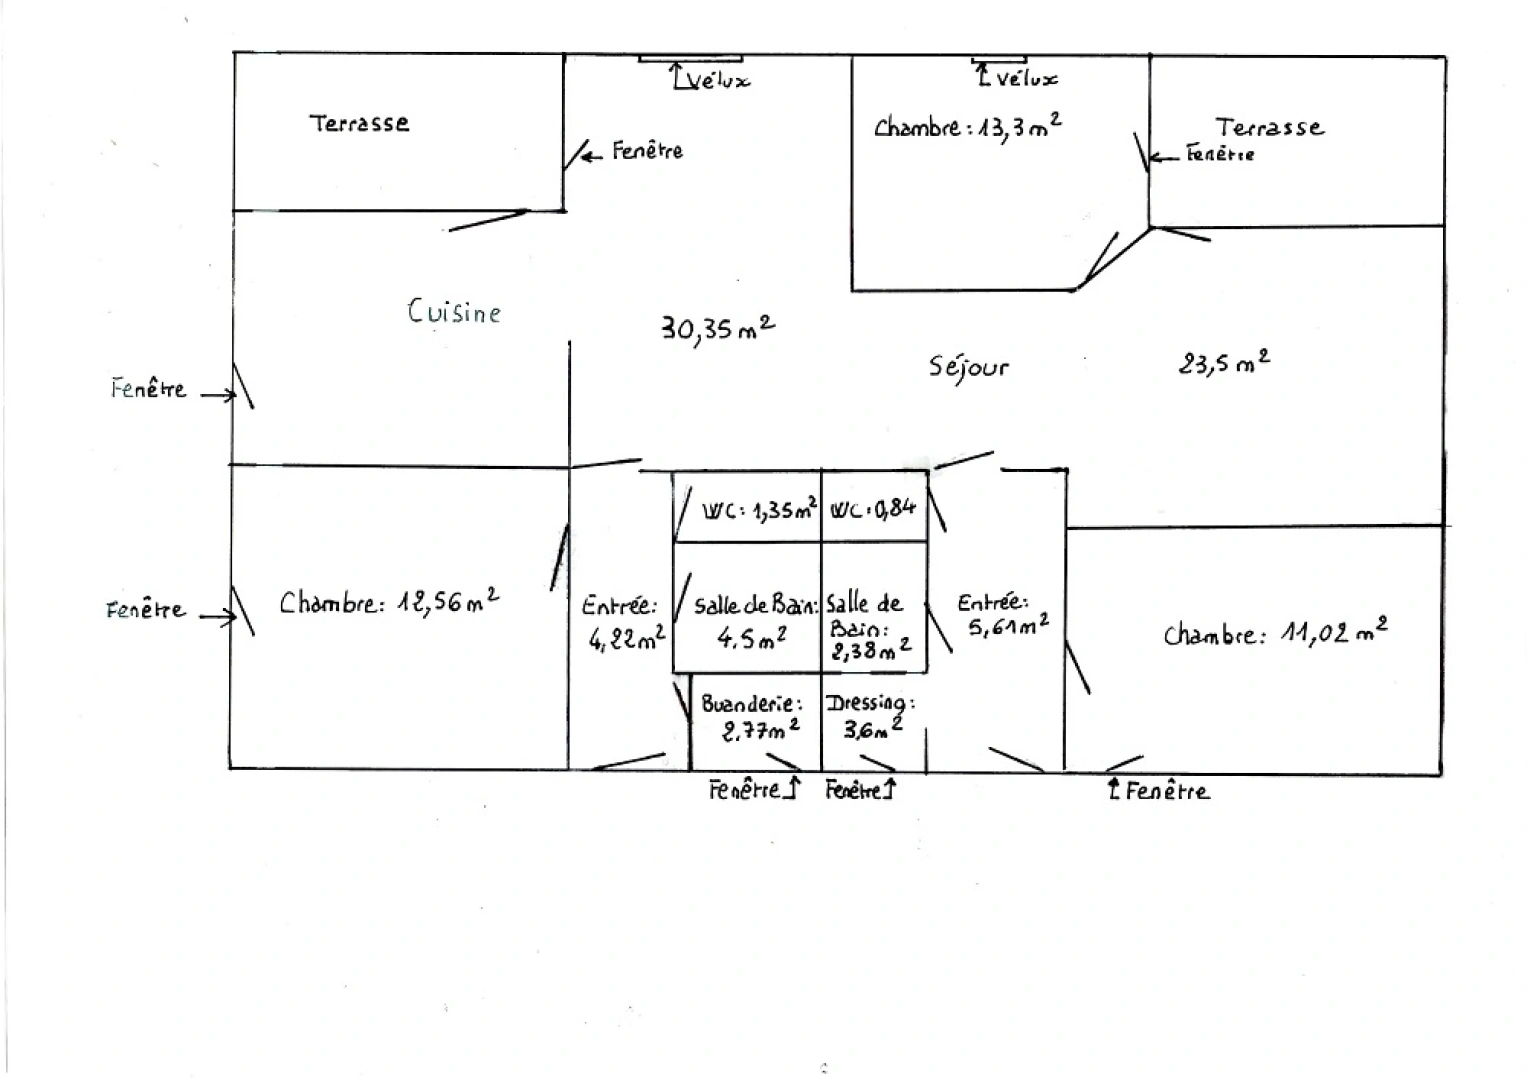 Vélux
Vélux
Terrasse
Fenêtre
Chambre: 13,3 m²
Terrasse
Fenêtre
Cuisine
30,35 m²
Séjour
23,5 m²
Fenêtre
WC: 1,35 m²
WC: 0,84
Fenêtre
Chambre: 12,56 m²
Entrée:
4,22 m²
Salle de Bain:
4.5 m²
Salle de
Bain:
2,38 m²
Entrée:
5,61 m²
Chambre: 11,02 m²
Buanderie:
2.77 m²
Dressing:
3,6 m²
Fenêtre
Fenêtre
Fenêtre